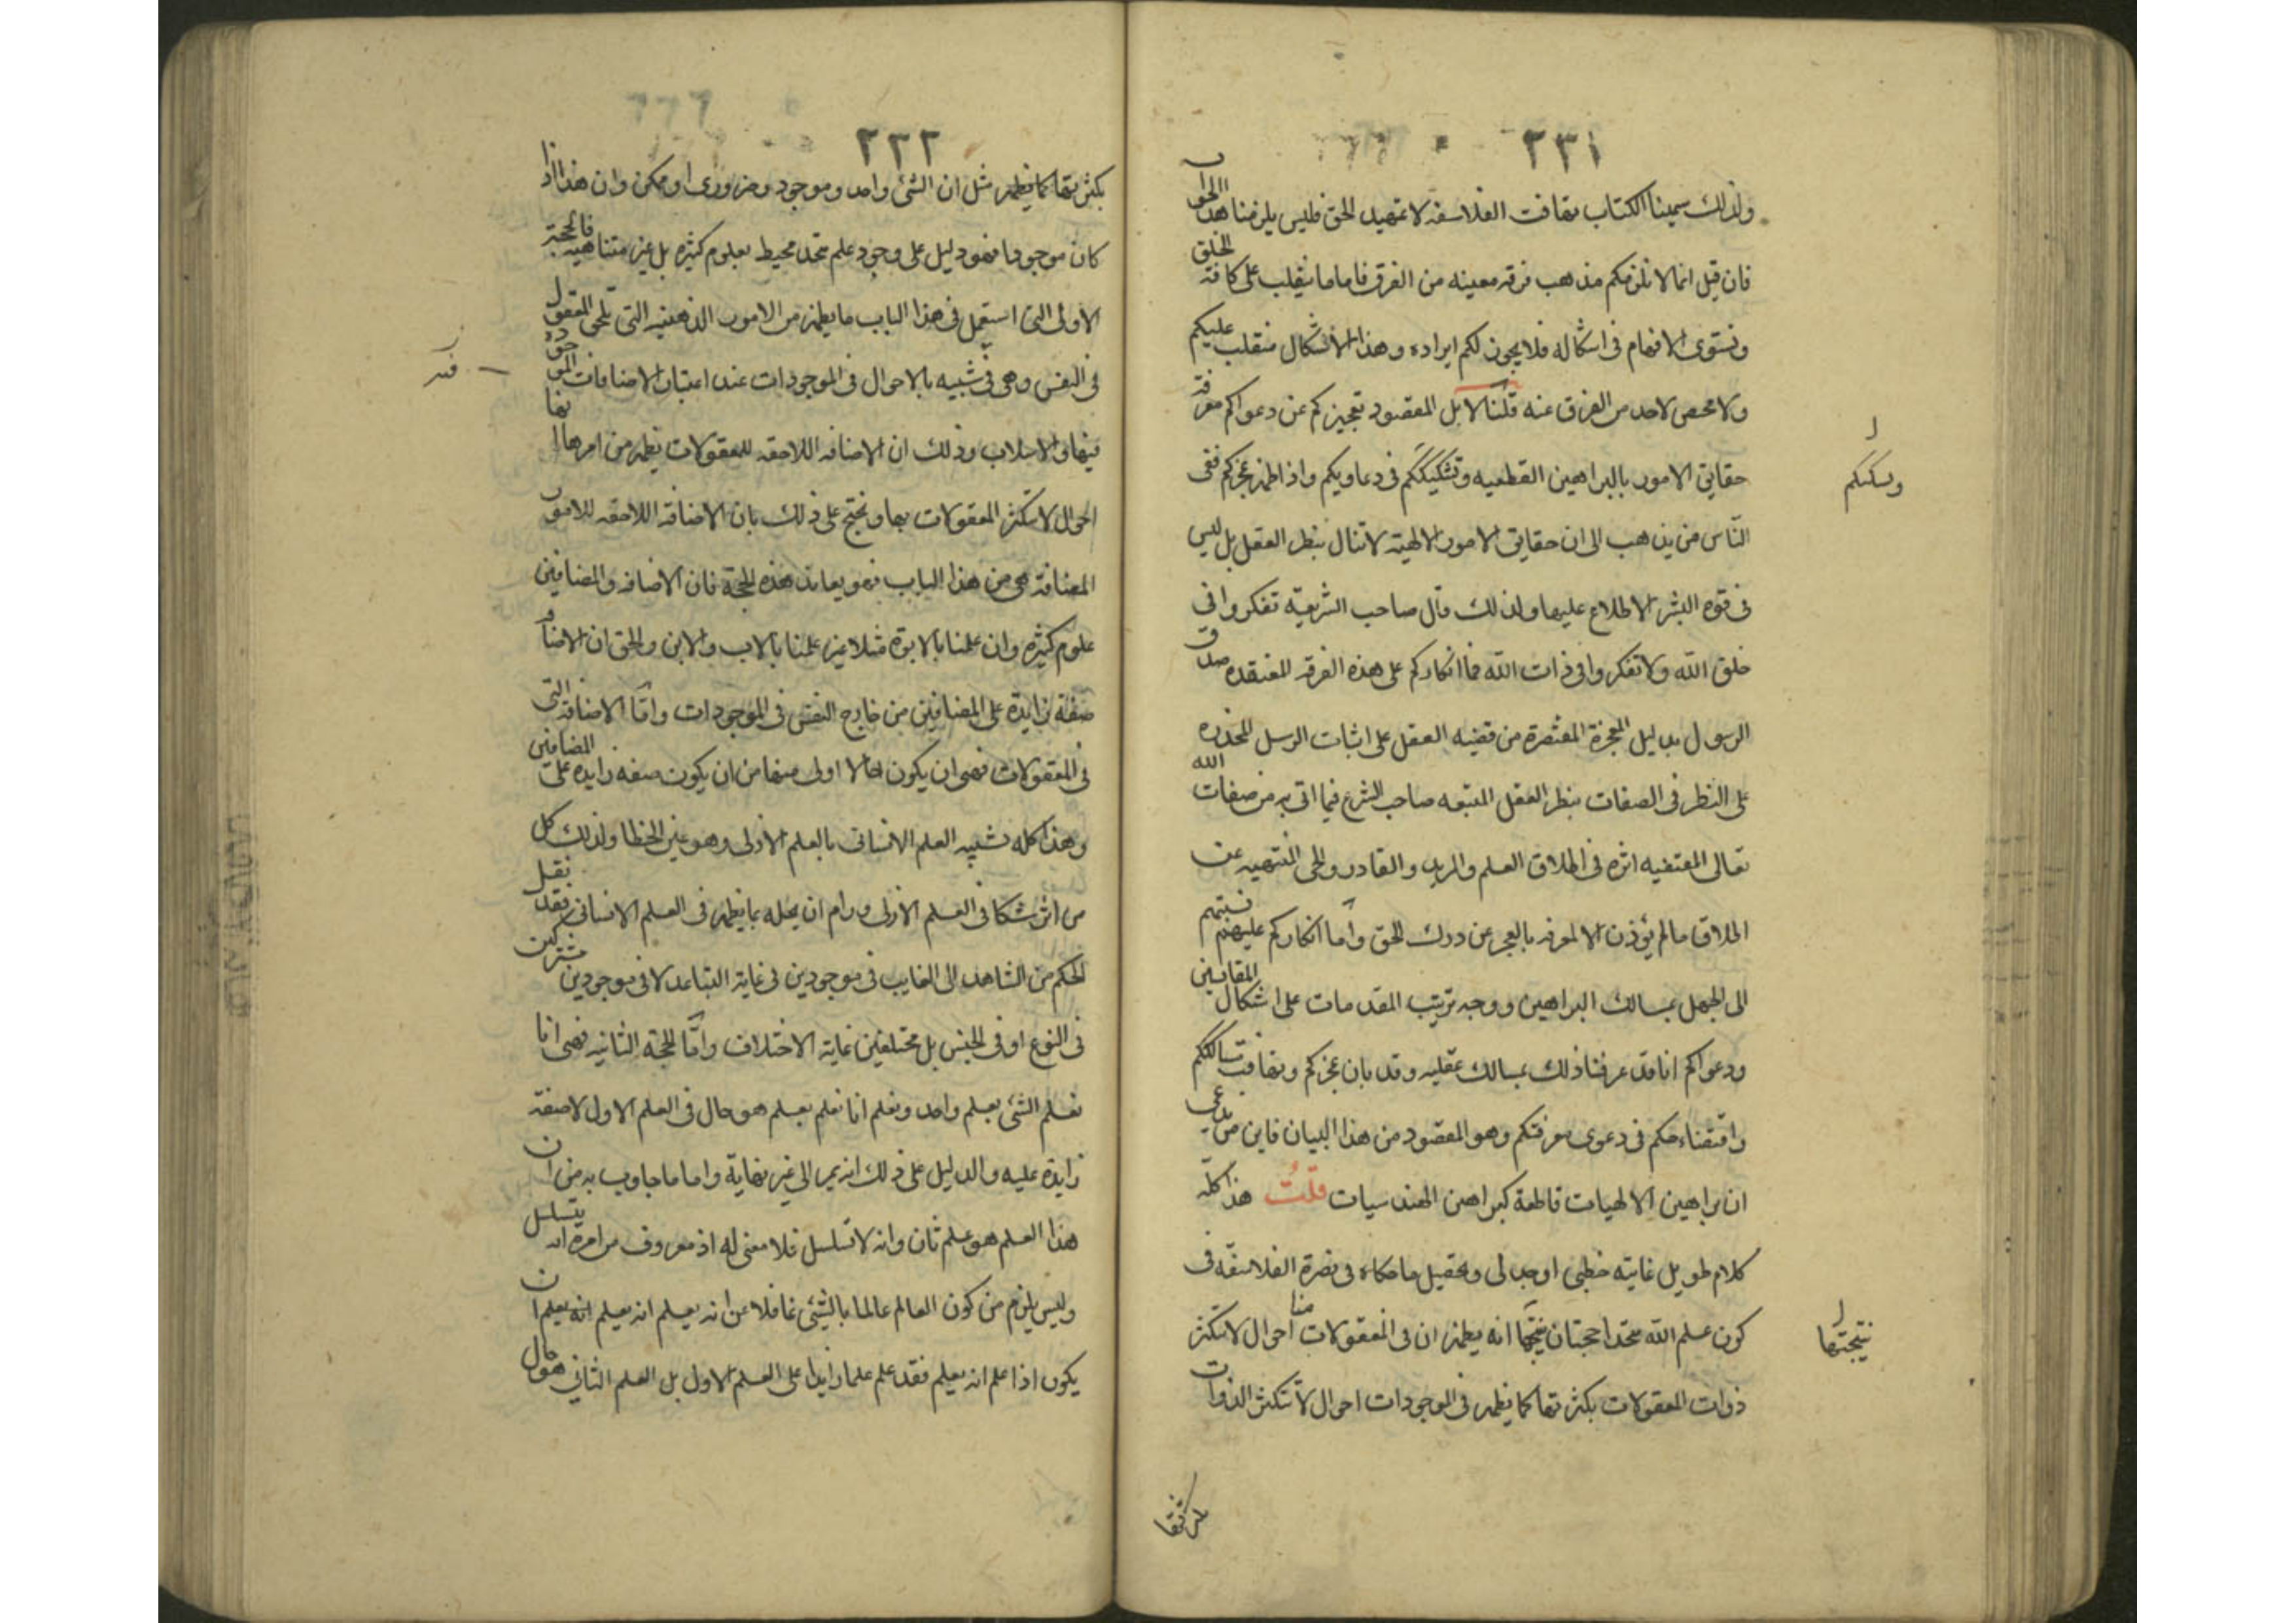 ٢٣١
ولذلك سمينا الكتاب تهافت الفلاسفة لا تمهيد الحق فليس يلزمنا هذا الجواب
فان قيل انما لا نلزمكم مذهب فرقه معينه من الفرق فاما ما ينقلب على كافة الخلق
وتستوى الافهام فى اشكاله فلا يجوز لكم ايراده وهذا الاشكال منقلب عليكم
ولا محيص لاحد من الفرق عنه قلنا لا بل المقصود تعجيزكم عن دعواكم معرفة
حقايق الامور بالبراهين القطعيه وتشكيككم فى دعاويكم واذا ظهر عجزكم ففى
وتشكيككم
الناس من يذهب الى ان حقايق الامور الالهية لا تنال بنظر العقل بل ليس
فى قوه البشر الاطلاع عليها ولذلك قال صاحب الشريعة تفكروا فى
خلق الله ولا تفكروا فى ذات الله فما انكاركم على هذه الفرقه المعتقده صدق
الرسول بدليل المعجزة المقتصرة من قضيه العقل على اثبات الرسل المحذره
على النظر فى الصفات بنظر العقل المتبعه صاحب الشرع فيما اتى به من صفات الله
تعالى المقتفيه اثره فى اطلاق العلم والمريد والقادر والحى المنتهيه عن
اطلاق ما لم يؤذن المعرفه بالعجز عن درك الحق وأما انكاركم عليهم نسبتهم
الى الجهل بمسالك البراهين ووجه ترتيب المقدمات على اشكال المقايسن
ودعواكم انا قد عرفنا ذلك بمسالك عقليه وقد بان عجزكم وتهافت مسالككم
وافتضاحكم فى دعوى معرفتكم وهو المقصود من هذا البيان فاين من يدعى
ان براهين الالهيات قاطعة كبراهين الهندسيات قلتُ هذا كله
كلام طويل غايته خطبى او جدلى وتحصيل ما حكاه فى نصرة الفلاسفه فى
كون علم الله متحدا حجتان نتيجتها انه يظهر ان فى المعقولات منا احوال لا تتكثر
نتيجتها
ذوات المعقولات بكثرتها كما يظهر فى الموجودات احوال لا تتكثر الذوات
٢٣٢
بكثرتها كما يظهر مثل ان الشئ واحد وموجود وضرورى او ممكن وان هذا اذا
كان موجودا فهو دليل على وجود علم متحد محيط بعلوم كثيره بل غير متناهيه فالحجة
الاولى التى استعمل فى هذا الباب ما يظهر من الامور الذهنيه التى تلحق المعقول
فى النفس وهى فى شبيه بالاحوال فى الموجودات عند اعتبار الاضافات الموجودة
فيها والاسلاب وذلك ان الاضافه اللاحقه للمعقولات يظهر من امرها انها
احوال لا تتكثر المعقولات بها ويحتج على ذلك بان الاضافة اللاحقه للامور
المضافة هى من هذا الباب فهو يعاند هذه الحجة فان الاضافه والمضافين
علوم كثيره وان علمنا بالابوة مثلا غير علمنا بالاب والابن والحق ان الاضافة
صفة زايدة على المضافين من خارج النفس فى الموجودات واما الاضافة التى
فى المعقولات فهى ان يكون حالا اولى منها من ان يكون صفه زايده على المضافين
وهذا كله تشبيه العلم الانسانى بالعلم الازلى وهو عين الخطا ولذلك كل
من اثر شكا فى العلم الازلى ورام ان يحله بما يظهر فى العلم الانسانى فقد نقل
الحكم من الشاهد الى الغايب فى موجودين فى غاية التباعد لا فى موجودين مشتركين
فى النوع او فى الجنس بل مختلفين غاية الاختلاف وامّا الحجة الثانيه فهى انا
نعلم الشئ بعلم واحد ونعلم انا نعلم بعلم هو حال فى العلم الاول لا صفة
زايدة عليه والدليل على ذلك انه يمر الى غير نهاية واما ما جاوب به من ان
هذا العلم هو علم ثان وانه لا تسلسل فلا معنى له اذ معروف من امره انه يتسلسل
وليس يلزم من كون العالم عالما بالشئ غافلا عن انه يعلم انه يعلم انه يعلم ان
يكون اذا علم انه يعلم فقد علم علما زايدا على العلم الاول بل العلم الثانى هو حال